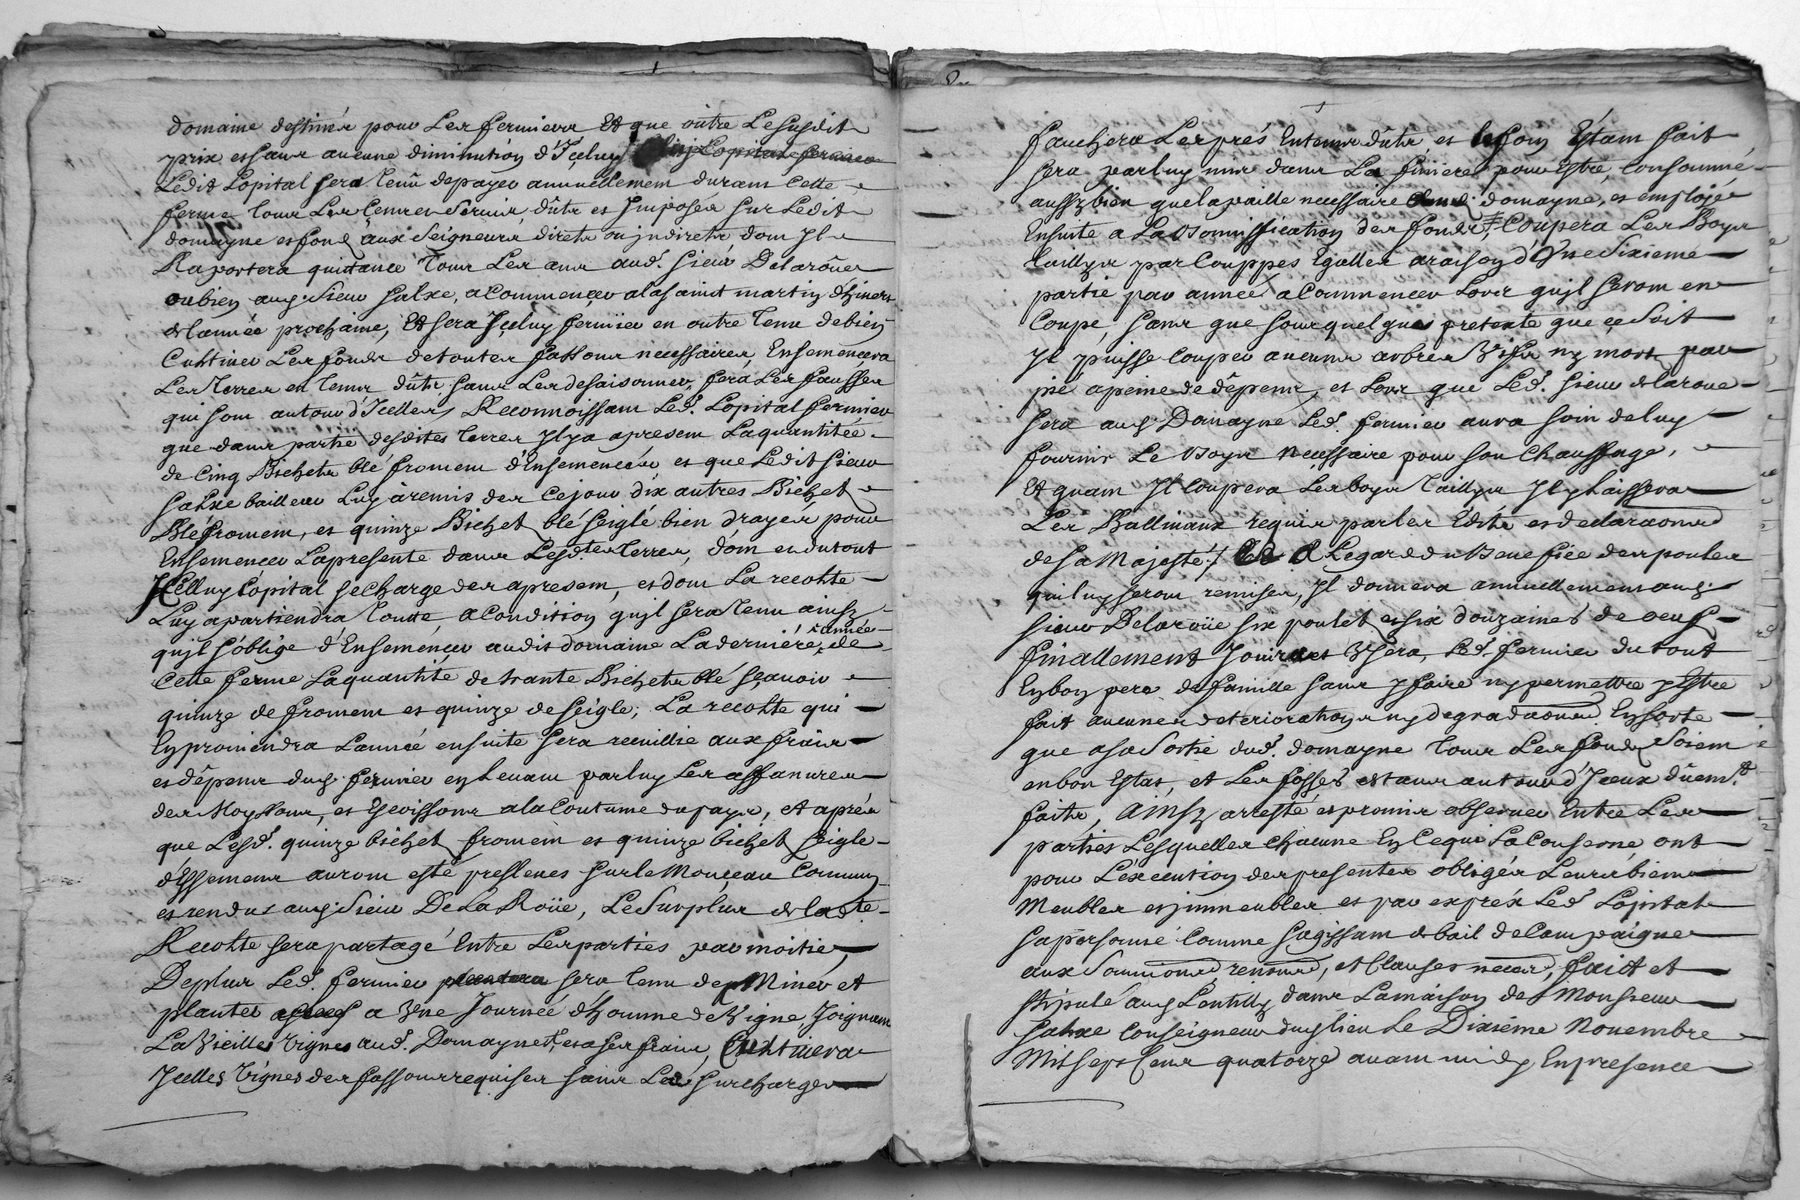 domaine destinés pour Les fermiers Et que outre Le susdit
prix et sans aucune diminution d'Iceluy
Ledit Lopital sera tenû de payer annuellement durant Cette
ferme tous Les Cens et Servis dûts et Imposés sur Ledit
domayne et fond aux Seigneurs direts ou indirets, dont Il
Raportera quittance tous Les ans aud. sieur Delarôüe
oubien aud. Sieur Salxe, a Commencer a la saint martin d'hivert
de l'année prochaine, Et sera Iceluy fermier en outre tenu de bien
Cultiver Les fonds de toutes fassons necessaires, Ensemencera
Les terres en temps dûts sans Les desaisonner, fera Les fausses
qui sont autour d'Icelles Reconnoissant Led. Lopital fermier
que dans partie desdites terres Il y a apresent La quantitée
de Cinq Bichets blé froment d'Ensemencée et que Ledit sieur
Salxe bailleur Luy à remis des ce jour dix autres Bichet
Blé froment, et quinze Bichet blé seigle bien drayés pour
Ensemencer La presente dans Lesd.tes terres, dont et du tout
Icelluy Lopital se charge des apresent, et dont La recolte
Luy apartiendra toutte, a Condition qu'il sera tenu ainsy
qu'il s'oblige d'Ensemencer audit domaine La derniére année de
Cette ferme La quantité de trante Bichets blé sçavoir
quinze de froment et quinze de seigle; La recolte qui
En proviendra L'année ensuite sera receuillie aux frais
et dêpens dud. fermier en Levant par luy Les affanures
des Moyssons, et Escoissons a la Coutume du pays, et aprés
que Lesd. quinze bichet froment et quinze bichet seigle
d'Essemens auront esté preslevés sur le Monceau Commun
et rendus aud. Sieur De La Roüe, Le Surplus de lad.te
Recolte sera partagé Entre Les parties par moitié
De plus Led. fermier sera tenu de Miner et
planter a Vne Journée d'homme de Vigne Joignant
La Vieilles Vignes aud. Domayne, et a ses frais, Cultivera
Icelles Vignes des fassons requises sans Les surcharger
fauchera Les prés En temps dûts et le foin Estant fait
sera par luy mis dans La finiere pour Estre, Consommé
aussy bien que la paille necessaire domayne, et employé
Ensuite a La bonnissification des fonds, Coupera Les Boys
taillys par Couppes Egalles a raison d'Vne Sixieme
partie par année a Commencer Lors qu'il seront en
Coupe, sans que sous quelques pretexte que ce Soit
Il puisse Couper aucuns arbres Vifs ny morts par
pié a peine de dêpens, et Lors que Led. sieur de laroüe
sera aud. Domayne Led. fermier aura soin de luy
fournir Le boys necessaire pour son Chauffage,
Et quant Il Coupera Les boys taillys Il y laissera
Les Ballivaux requis par les Edits et declaraons
de Sa Majesté, A Legard du Benefice des poules
qui luy seront remises, Il donnera annuellement aud.
sieur Delaroüe six poulet et six douzaines de oeufs
finallement Jouira et Vsera, Led. fermier du tout
En bon pere de famille sans y faire ny permettre y Estre
fait aucunes deteriorations ny degradaons En sorte
que a sa Sortie dud. domayne tous Les fonds Soient
en bon Estat, et Les fossés estans autour d'Iceux dûemt
faits, Ainsy arresté et promis observer Entre Les
parties Lesquelles Chacune En Ce qui La Conserne, ont
pour L'execution des presentes obligés Leurs biens
Meubles et immeubles et par exprés Led. Lopital
sa personne Comme s'agissant de bail de Campaigne
aux Soumions renons, et Clauses necess, fait et
stipulé aud. Lentilly dans La maison de Monsieur
Salxe Conseigneur dud. lieu Le Dixiéme Novembre
Mil sept Cens quatorze avant midy En presence